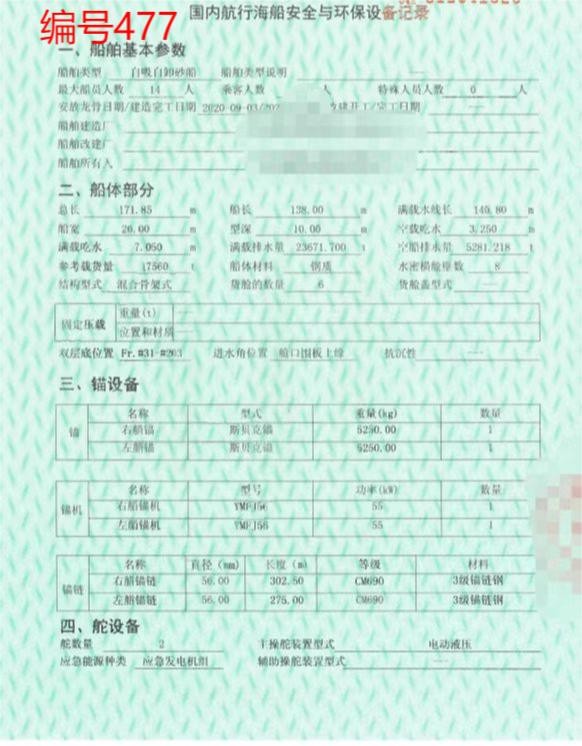 编号477
国内航行海船安全与环保设备记录
一、船舶基本参数
船舶类型 自吸自卸砂船 船舶类型说明 —
最大船员人数 14 人 乘客人数 人 特殊人员人数 0 人
安放龙骨日期/建造完工日期 2020-09-03/202 改建开工/完工日期 —
船舶建造厂
船舶改建厂
船舶所有人
二、船体部分
总长 171.85 m 船长 138.00 m 满载水线长 140.80 m
船宽 26.00 m 型深 10.00 m 空载吃水 3.250 m
满载吃水 7.050 m 满载排水量 23671.700 t 空船排水量 5281.218 t
参考载货量 17560 t 船体材料 钢质 水密横舱壁数 8
结构型式 混合骨架式 货舱的数量 6 货舱盖型式 —
固定压载 重量(t) —
位置和材质 —
双层底位置 Fr.#31-#203 进水角位置 舱口围板上缘 抗沉性 —
三、锚设备
名称 型式 重量(kg) 数量
锚 右艏锚 斯贝克锚 5250.00 1
左艏锚 斯贝克锚 5250.00 1
名称 型号 功率(kW) 数量
锚机 右艏锚机 YMFJ56 55 1
左艏锚机 YMFJ56 55 1
名称 直径(mm) 长度(m) 等级 材料
锚链 右艏锚链 56.00 302.50 CM690 3级锚链钢
左艏锚链 56.00 275.00 CM690 3级锚链钢
四、舵设备
舵数量 2 主操舵装置型式 电动液压
应急能源种类 应急发电机组 辅助操舵装置型式 —